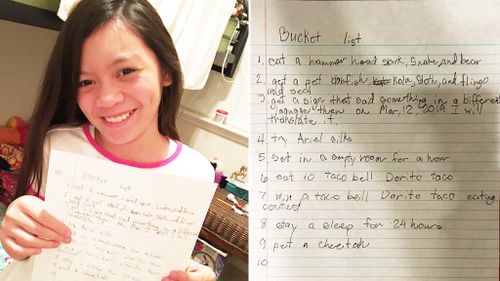 Bucket list
1. eat a hammer head sark, Snake, and bear
2. get a pet catfish, kola, sloth, and flingo
and seel
3. get a sign that said something in a different
languge then on Mar, 12, 2019 I will
translate it.
4. try Ariel silks
5. set in a empty room for a hour
6. eat 10 taco bell Dorito taco
7. win a taco bell Dorito taco eating
contest
8. stay a sleep for 24 hours
9. pet a cheetah
10
Bucket
list